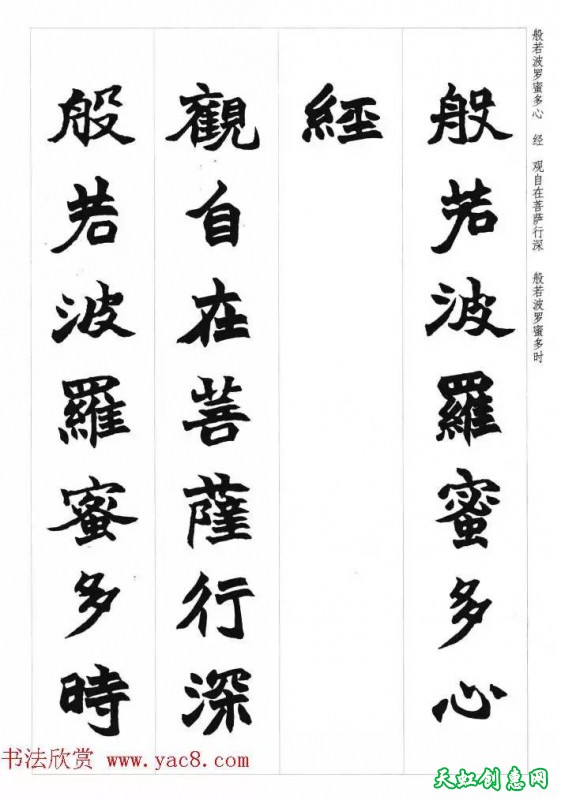 般若波罗蜜多心 经 观自在菩萨行深 般若波罗蜜多时
般若波羅蜜多心
經
觀自在菩薩行深
般若波羅蜜多時
书法欣赏 www.yac8.com
天虹创意网